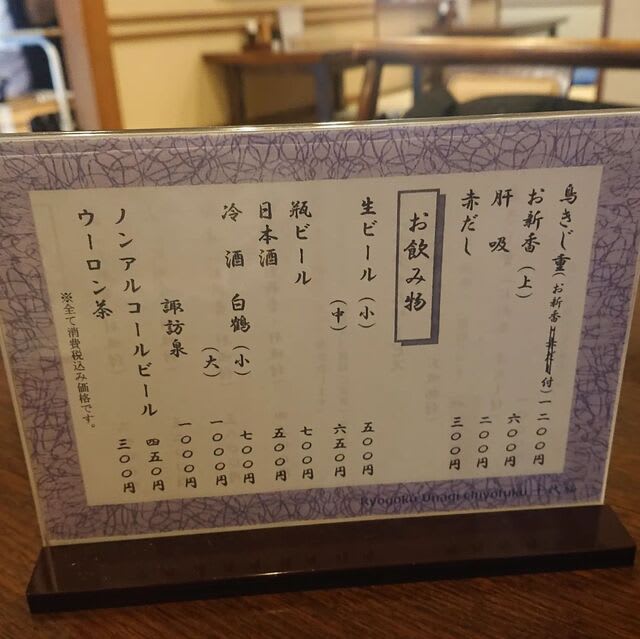 鳥きじ重（お新香付）一二〇〇円
お新香（上）六〇〇円
肝吸 二〇〇円
赤だし 三〇〇円
お飲み物
生ビール（小）五〇〇円
（中）六五〇円
瓶ビール 七〇〇円
日本酒 五〇〇円
冷酒 白鶴（小）七〇〇円
（大）一〇〇〇円
諏訪泉 一〇〇〇円
ノンアルコールビール 四五〇円
ウーロン茶 三〇〇円
※全て消費税込み価格です。
Ryogoku Unagi Chiyofuku 千代福